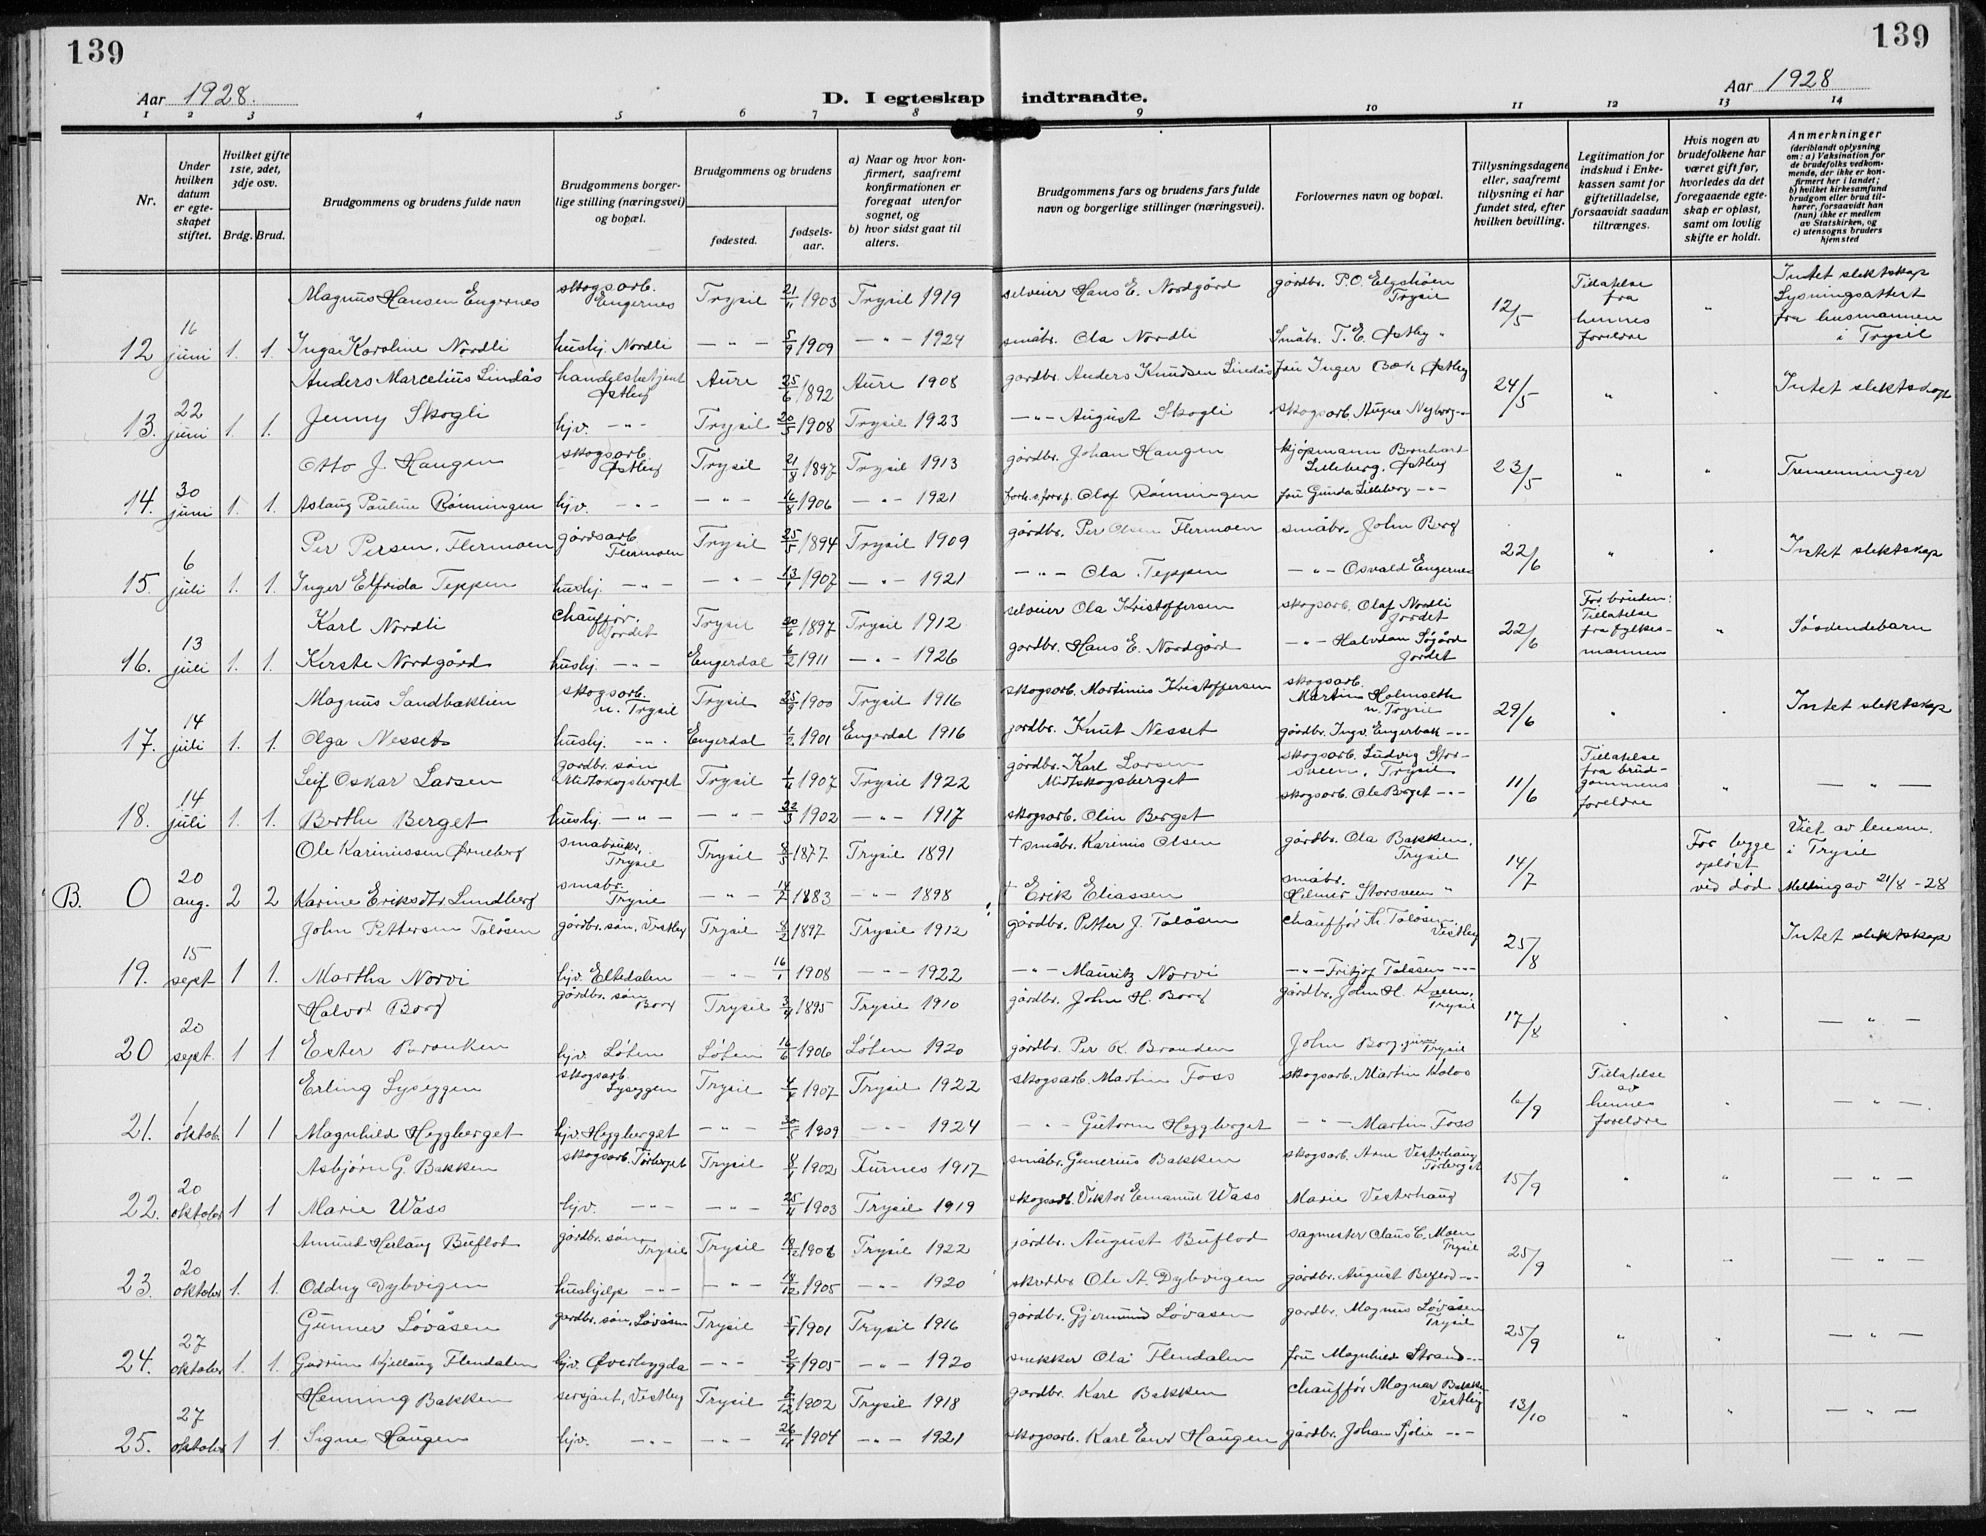 139
139
Aar 1928.
D. I egteskap indtraadte.
Aar 1928
1 2 3 4 5 6 7 8 9 10 11 12 13 14
Nr.
Under hvilken datum er egteskapet stiftet.
Hvilket gifte 1ste, 2det, 3dje osv.
Brdg. Brud.
Brudgommens og brudens fulde navn
Brudgommens borgerlige stilling (næringsvei) og bopæl.
Brudgommens og brudens
fødested.
fødselsaar.
a) Naar og hvor konfirmert, saafremt konfirmationen er foregaat utenfor sognet, og
b) hvor sidst gaat til alters.
Brudgommens fars og brudens fars fulde navn og borgerlige stillinger (næringsvei).
Forlovernes navn og bopæl.
Tillysningsdagene eller, saafremt tillysning ei har fundet sted, efter hvilken bevilling.
Legitimation for indskud i Enkekassen samt for giftetilladelse, forsaavidt saadan tiltrænges.
Hvis nogen av brudefolkene har været gift før, hvorledes da det foregaaende egteskap er opløst, samt om lovlig skifte er holdt.
Anmerkninger (deriblandt oplysning om: a) Vaksination for de brudefolks vedkommende, der ikke er konfirmert her i landet; b) hvilket kirkesamfund brudgom eller brud tilhører, forsaavidt han (hun) ikke er medlem av Statskirken, og c) utensogns bruders hjemsted
Magnus Hansen Engernes skogsarb. Engernes Trysil 21/11 1903 Trysil 1919 selveier Hans E. Nordgård gårdbr. P.O. Elgshøen Trysil 12/5 Tilatelse fra hennes foreldre " Intet slektskap Lysningsattest fra lensmannen i Trysil
12 16 juni 1. 1. Inga Karoline Nordli hushj. Nordli - " - 5/9 1909 - " - 1924 småbr. Ola Nordli Småbr. T. E. Østby "
Anders Marcelius Lindås handelsbetjent Østby Aure 25/6 1892 Aure 1908 gårdbr. Anders Knudsen Lindås fru Inger Bak Østby 24/5 " " Intet slektskap
13. 22 juni 1. 1. Jenny Skogli hjv. - " - Trysil 20/5 1908 Trysil 1923 - " - August Skogli skogsarb. Augne Nyborg - " -
Otto J. Haugen skogsarb. Østby Trysil 21/8 1897 Trysil 1913 gårdbr. Johan Haugen kjøpmann Bernhard Lilleberg, Østby 23/5 " " Tremenninger
14. 30 juni 1. 1. Aslaug Pauline Rønningen hjv. - " - - " - 16/8 1906 - " - 1921 Olaf Rønningen fru Gunda Lilleberg - " -
Per Persen Flermoen gårdsarb. Flermoen Trysil 25/5 1894 Trysil 1909 gårdbr. Per Olsen Flermoen småbr. John Berg 22/6 " " Intet slektskap
15. 6 juli 1. 1. Inger Elfrida Teppen hushj. - " - - " - 13/1 1907 - " - 1921 - " - Ola Teppen - " - Osvald Engernes
Karl Nordli chauffør. Jordet Trysil 20/6 1897 Trysil 1912 selveier Ola Kristoffersen skogsarb. Olaf Nordli Jordet 22/6 For bruden: Tilatelse fra fylkesmannen " Søskendebarn
16. 13 juli 1. 1. Kirste Nordgård hushj. - " - Engerdal 6/2 1911 - " - 1926 gårdbr. Hans E. Nordgård - " - Halvdan Søgård Jordet
Magnus Sandbaklien skogsarb. n. Trysil Trysil 25/9 1900 Trysil 1916 skogsarb. Martinus Kristoffersen skogsarb. Martin Holmseth n. Trysil 29/6 " " Intet slektskap
17. 14 juli 1. 1. Olga Nesset hushj. - " - Engerdal 1/2 1901 Engerdal 1916 gårdbr. Knut Nesset gårdbr. Ingv. Engerbak - " -
Leif Oskar Larsen gårdbr. søn Midtskogsberget Trysil 1/4 1907 Trysil 1922 gårdbr. Karl Larsen Midtskogsberget skogsarb. Ludvig Storsveen, Trysil 11/6 Tilatelse fra brudgommens foreldre " - " -
18. 14 juli 1. 1. Berthe Berget hushj. - " - - " - 22/3 1902 - " - 1917 skogsarb. Olin Berget skogsarb. Ole Berget - " -
Ole Karinussen Ørneberg småbruker, Trysil Trysil 8/5 1877 Trysil 1891 + småbr. Karinus Olsen gårdbr. Ola Bakken, Trysil 14/7 For begge opløst ved død Viet av lensm. i Trysil
B. 0 20 aug. 2 2 Karine Eriksdtr Lundberg småbr. Trysil - " - 14/2 1883 - " - 1898 + Erik Eliassen småbr. Hilmar Storsveen " Melding av 21/8 - 28
John Pettersen Taløsen gårdbr. søn, Vestby Trysil 8/2 1897 Trysil 1912 gårdbr. Petter J. Taløsen chauffør Th. Taløsen Vestby 25/8 Intet slektskap
19. 15 sept 1 1. Martha Norvi hjv. Eltdalen - " - 16/1 1908 - " - 1922 - " - Mauritz Norvi - " - Fritjof Taløsen - " -
Halvor Borg gårdbr. søn Borg Trysil 3/4 1895 Trysil 1910 gårdbr. John H. Borg gårdbr. John H. Kveen, Trysil 17/8 " " - " -
20 20 sept. 1 1 Ester Brenken hjv. Løten Løten 16/6 1906 Løten 1920 gårdbr. Per K. Brenden John Borg, Trysil
Erling Lyseggen skogsarb. Lyseggen Trysil 4/4 1907 Trysil 1922 skogsarb. Martin Foss skogsarb. Martin Kolos 6/9 Tilatelse av hennes foreldre " - " -
21. 1 oktob. 1 1 Magnhild Heggberget hjv. Heggberget - " - 30/5 1909 - " - 1924 - " - Gutorm Heggberget - " - Martin Foss
Asbjørn G. Bakken skogsarb. Tørberget Trysil 4/1 1902 Furnes 1917 småbr. Gunerius Bakken skogsarb. Arne Vesterhaug Tørberget 15/9 " " - " -
22. 20 oktober 1 1 Marie Wass hjv. - " - - " - 25/11 1903 Trysil 1919 skogsarb. Viktor Emanuel Wass Marie Vesterhaug
Amund Herlaug Buflod gårdbr. søn Trysil Trysil 18/12 1906 Trysil 1922 gårdbr. August Buflod sagmester Claus C. Moen Trysil 25/9 " " - " -
23. 20 oktober 1. 1. Oddny Dybvigen hushjelp - " - - " - 14/12 1905 - " - 1920 skredder Ole A. Dybvigen gårdbr. August Buflod - " -
Gunner Løvåsen gårdbr. søn, Løvåsen Trysil 5/9 1901 Trysil 1916 gårdbr. Gjermund Løvåsen gårdbr. Magnus Løvåsen Trysil 25/9 " " - " -
24. 27 oktober 1. 1. Gudrun Kjellaug Flendalen hjv. Øverbygda - " - 2/9 1905 - " - 1920 snekker Olai Flendalen fru Magnhild Strand - " -
Henning Bakken sersjant, Vestby Trysil 2/12 1902 Trysil 1918 gårdbr. Karl Bakken chauffør Magnar Bakken Vestby 13/10 " " - " -
25. 27 oktober 1 1. Signe Haugen hjv. - " - - " - 26/11 1904 - " - 1921 skogsarb. Karl Einar Haugen gårdbr. Johan Sjølie - " -